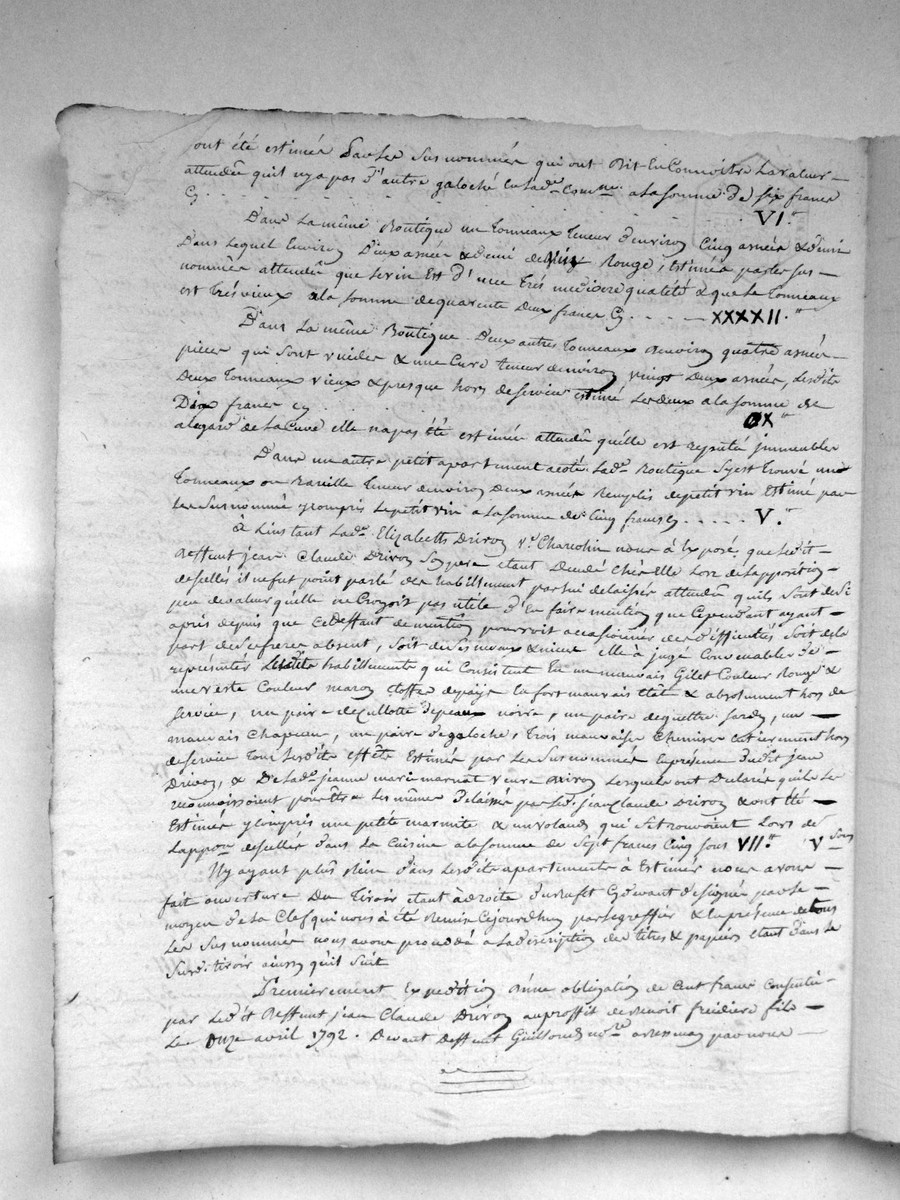 ont été estimés par les susnommés qui ont dit en connoitre la valeur
attendu quil ny a pas d'autre galoche en lad.e comm.e a la somme de six francs
Cy . . . . . . . . . . . . VI.#
Dans la même Boutique un tonneaux teneur d'environ Cinq année & demi
dans lequel Environ Deux année & demi de vin Rouge, Estimés par les sus-
nommés attendu que le vin Est d'une très mediocre qualité & que le tonneaux
est très vieux a la somme de quarente deux francs Cy . . . . XXXXII.#
Dans la même Boutique deux autres tonneaux d'environ quatre année
pièces qui sont vuides & une Cuve teneur denviron vingt deux année, lesdits
deux tonneaux vieux & presque hors de service estimé les deux a la somme de
Dix francs cy . . . . . X#
alegard de la Cuve elle na pas été estimée attendu qu'elle est reputé jmmeubles
Dans un autre petit apartement acoté lad.e Boutique s'y est trouvé un
tonneaux ou Baville teneur denviron deux année Remplis de petit vin Estimé par
les susnommé y compris le petit vin a la somme de Cinq francs Cy . . . . . V.#
A Linstant lad.e Elizabeth Drivon v.e Charrolin nous à Exposé, que ledit
deffunt jean Claude Drivon son pere etant decedé Chés elle lors de lapposition
descellés il ne fut point parlé des habillement par lui delaisser attendu quils sont de si
peu de valeur qu'elle ne Croyoit pas utile d'En faire mention que Cependant ayant
apris depuis que ce deffaut de mention pourroit accasionner des difficultés soit de la
part de ses freres absent, soit de ses neveux & niece elle à jugé Convenable de
representer lesdits habillements qui Consistent En un mauvais Gilet Couleur Rouge &
une veste Couleur maron Etoffe depays En fort mauvais Etat & absolument hors de
service, une paire de cullotte de peaux noire, un paire de guettre , un
mauvais chapeau, une paire de galoche, trois mauvaise Chemise Entierement hors
de service tous lesdits effets Estimés par les susnommés En presence dudit jean
Drivon, & de lad.e jeanne marie marnat veuve Drivon lesquels ont declaré quils les
reconnoissoient pour être les même delaissés par led. jean Claude Drivon & ont été
Estimés y compris une petite marmite & un volant qui s'etrouvoient Lors de
Lappon descellés dans la Cuisine a la somme de sept francs Cinq sous VII.# V sous
N'y ayant plus Rien dans lesdits apartements à Estimer nous avons
fait ouverture du tiroir etant à droite du Bufet Cydevant designé par le
moyen de la Clef qui nous à été Remis Cejourdhuy par le greffier & En presence de tous
les susnommés nous avons procédé a la description des titres & papiers etant dans le
susdit tiroir ainsy quil suit
Premierement Expedition d'une obligation de Cent francs Consentie
par ledit deffunt jean Claude Drivon au proffit de Benoit fils
Le onze avril 1792. Devant deffunt no.re par nous